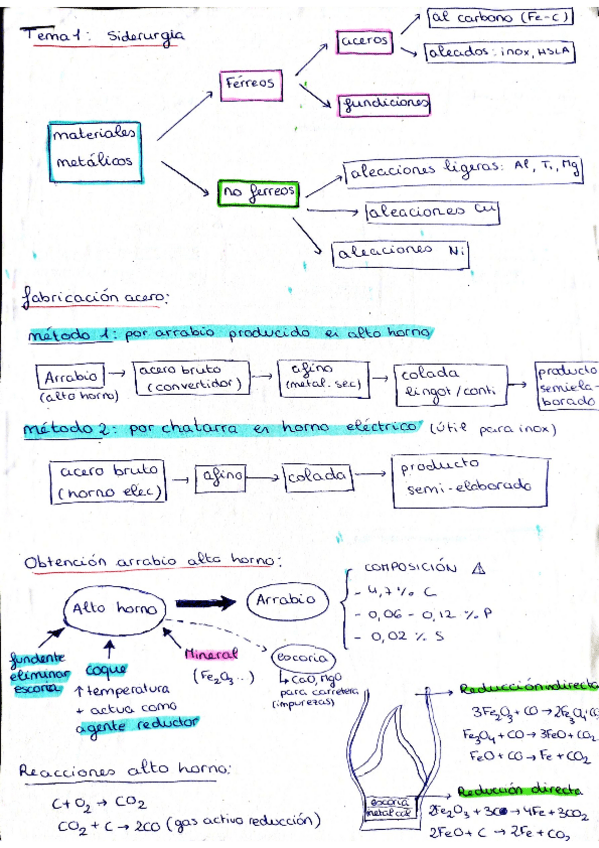 Tema 1: Siderurgia
materiales
metálicos
Férreos
aceros
al carbono (Fe-C)
aleados: inox, HSLA
fundiciones
no ferreos
aleaciones ligeras: Al, Ti, Mg
aleaciones Cu
aleaciones Ni
fabricación acero:
método 1: por arrabio producido en alto horno
Arrabio
(alto horno)
acero bruto
(convertidor)
afino
(metal. sec)
colada
lingot/conti
producto
semiela-
borado
método 2: por chatarra en horno eléctrico (útil para inox)
acero bruto
(horno elec)
afino
colada
producto
semi-elaborado
Obtención arrabio alto horno:
Alto horno
Arrabio
COMPOSICIÓN
- 4,7 % C
- 0,06 - 0,12 % P
- 0,02 % S
fundente
eliminar
escoria
coque
↑ temperatura
+ actua como
agente reductor
Mineral
(Fe2O3...)
escoria
↳ CaO, MgO
para carretera
(impurezas)
Reducción indirecta
3Fe2O3 + CO → 2Fe3O4 + CO
Fe3O4 + CO → 3FeO + CO2
FeO + CO → Fe + CO2
escoria
metal col
Reducción directa
2Fe2O3 + 3C → 4Fe + 3CO2
2FeO + C → 2Fe + CO2
Reacciones alto horno:
C + O2 → CO2
CO2 + C → 2CO (gas activo reducción)